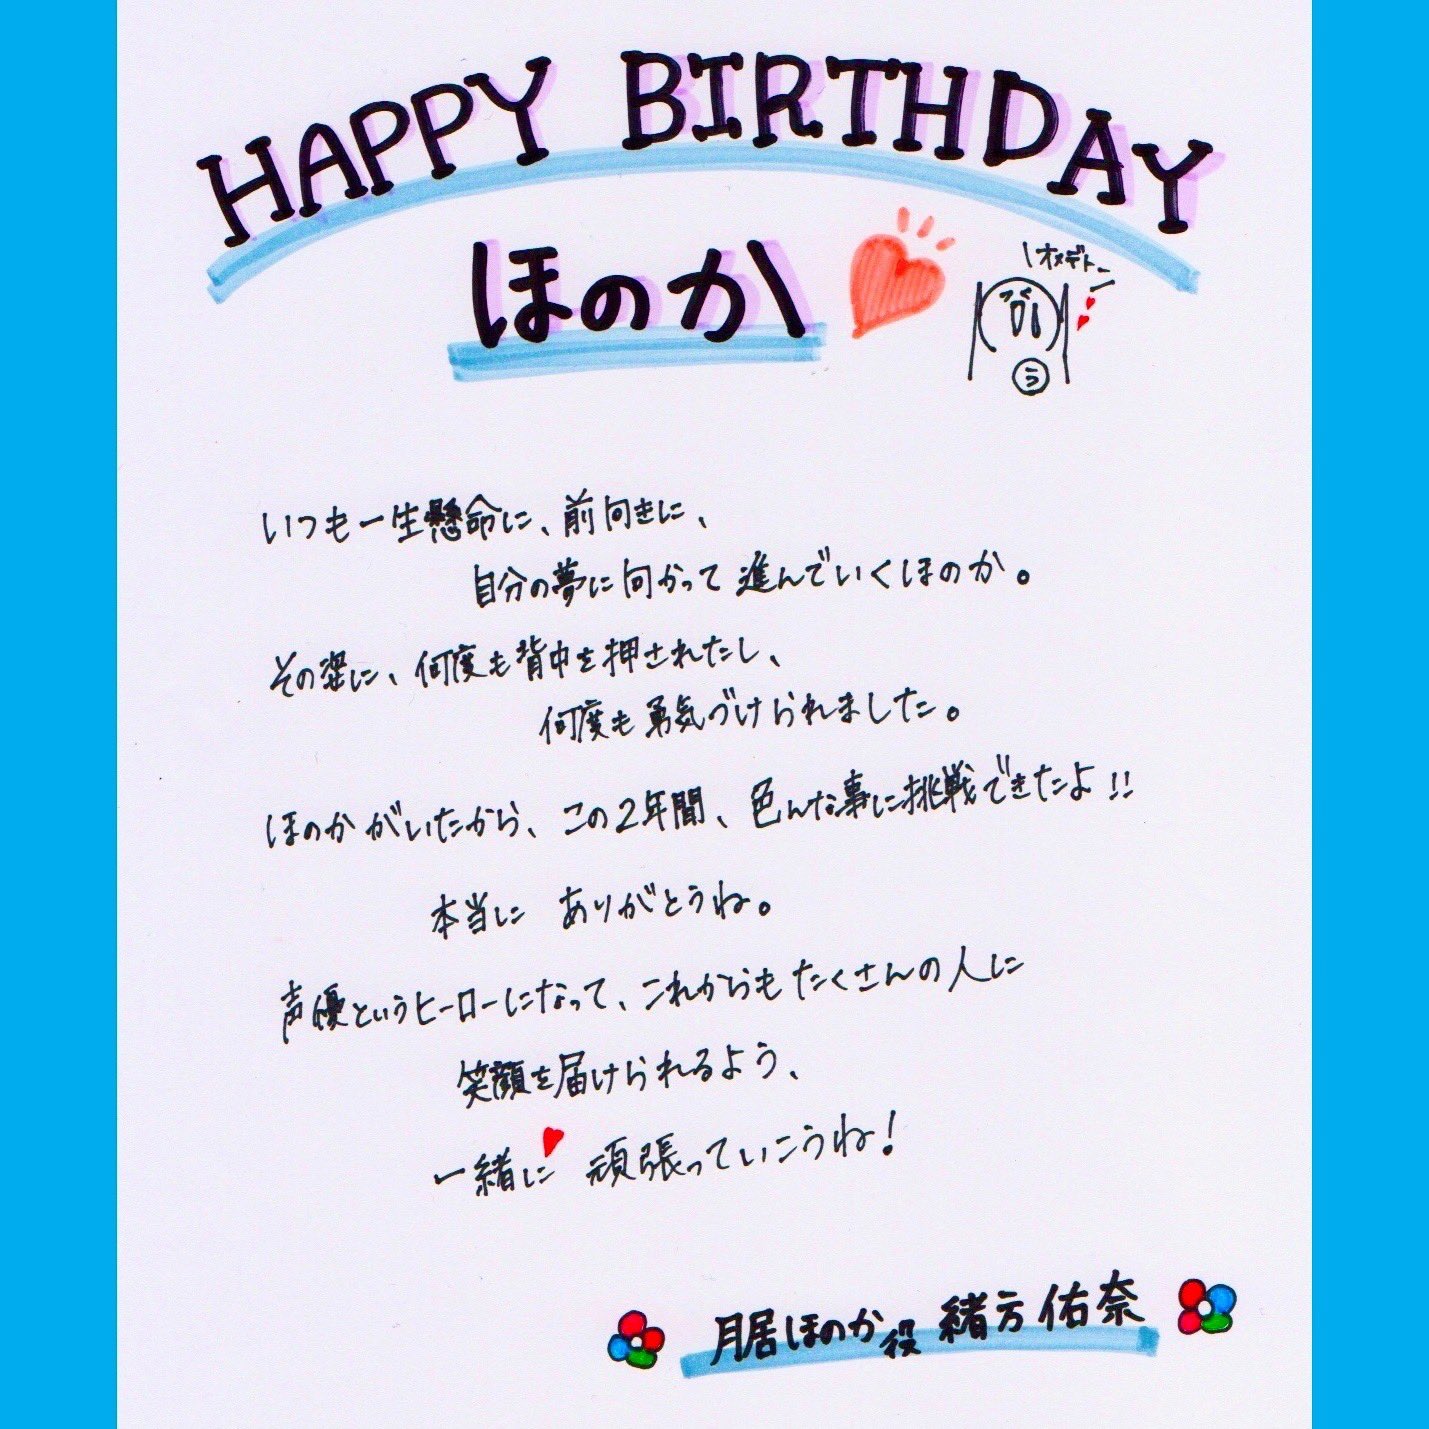 HAPPY BIRTHDAY
ほのか
オメデトー
う
いつも一生懸命に、前向きに、
自分の夢に向かって進んでいくほのか。
その姿に、何度も背中を押されたし、
何度も勇気づけられました。
ほのかがいたから、この2年間、色んな事に挑戦できたよ!!
本当に ありがとうね。
声優というヒーローになって、これからもたくさんの人に
笑顔を届けられるよう、
一緒に 頑張っていこうね!
月居ほのか役 緒方佑奈